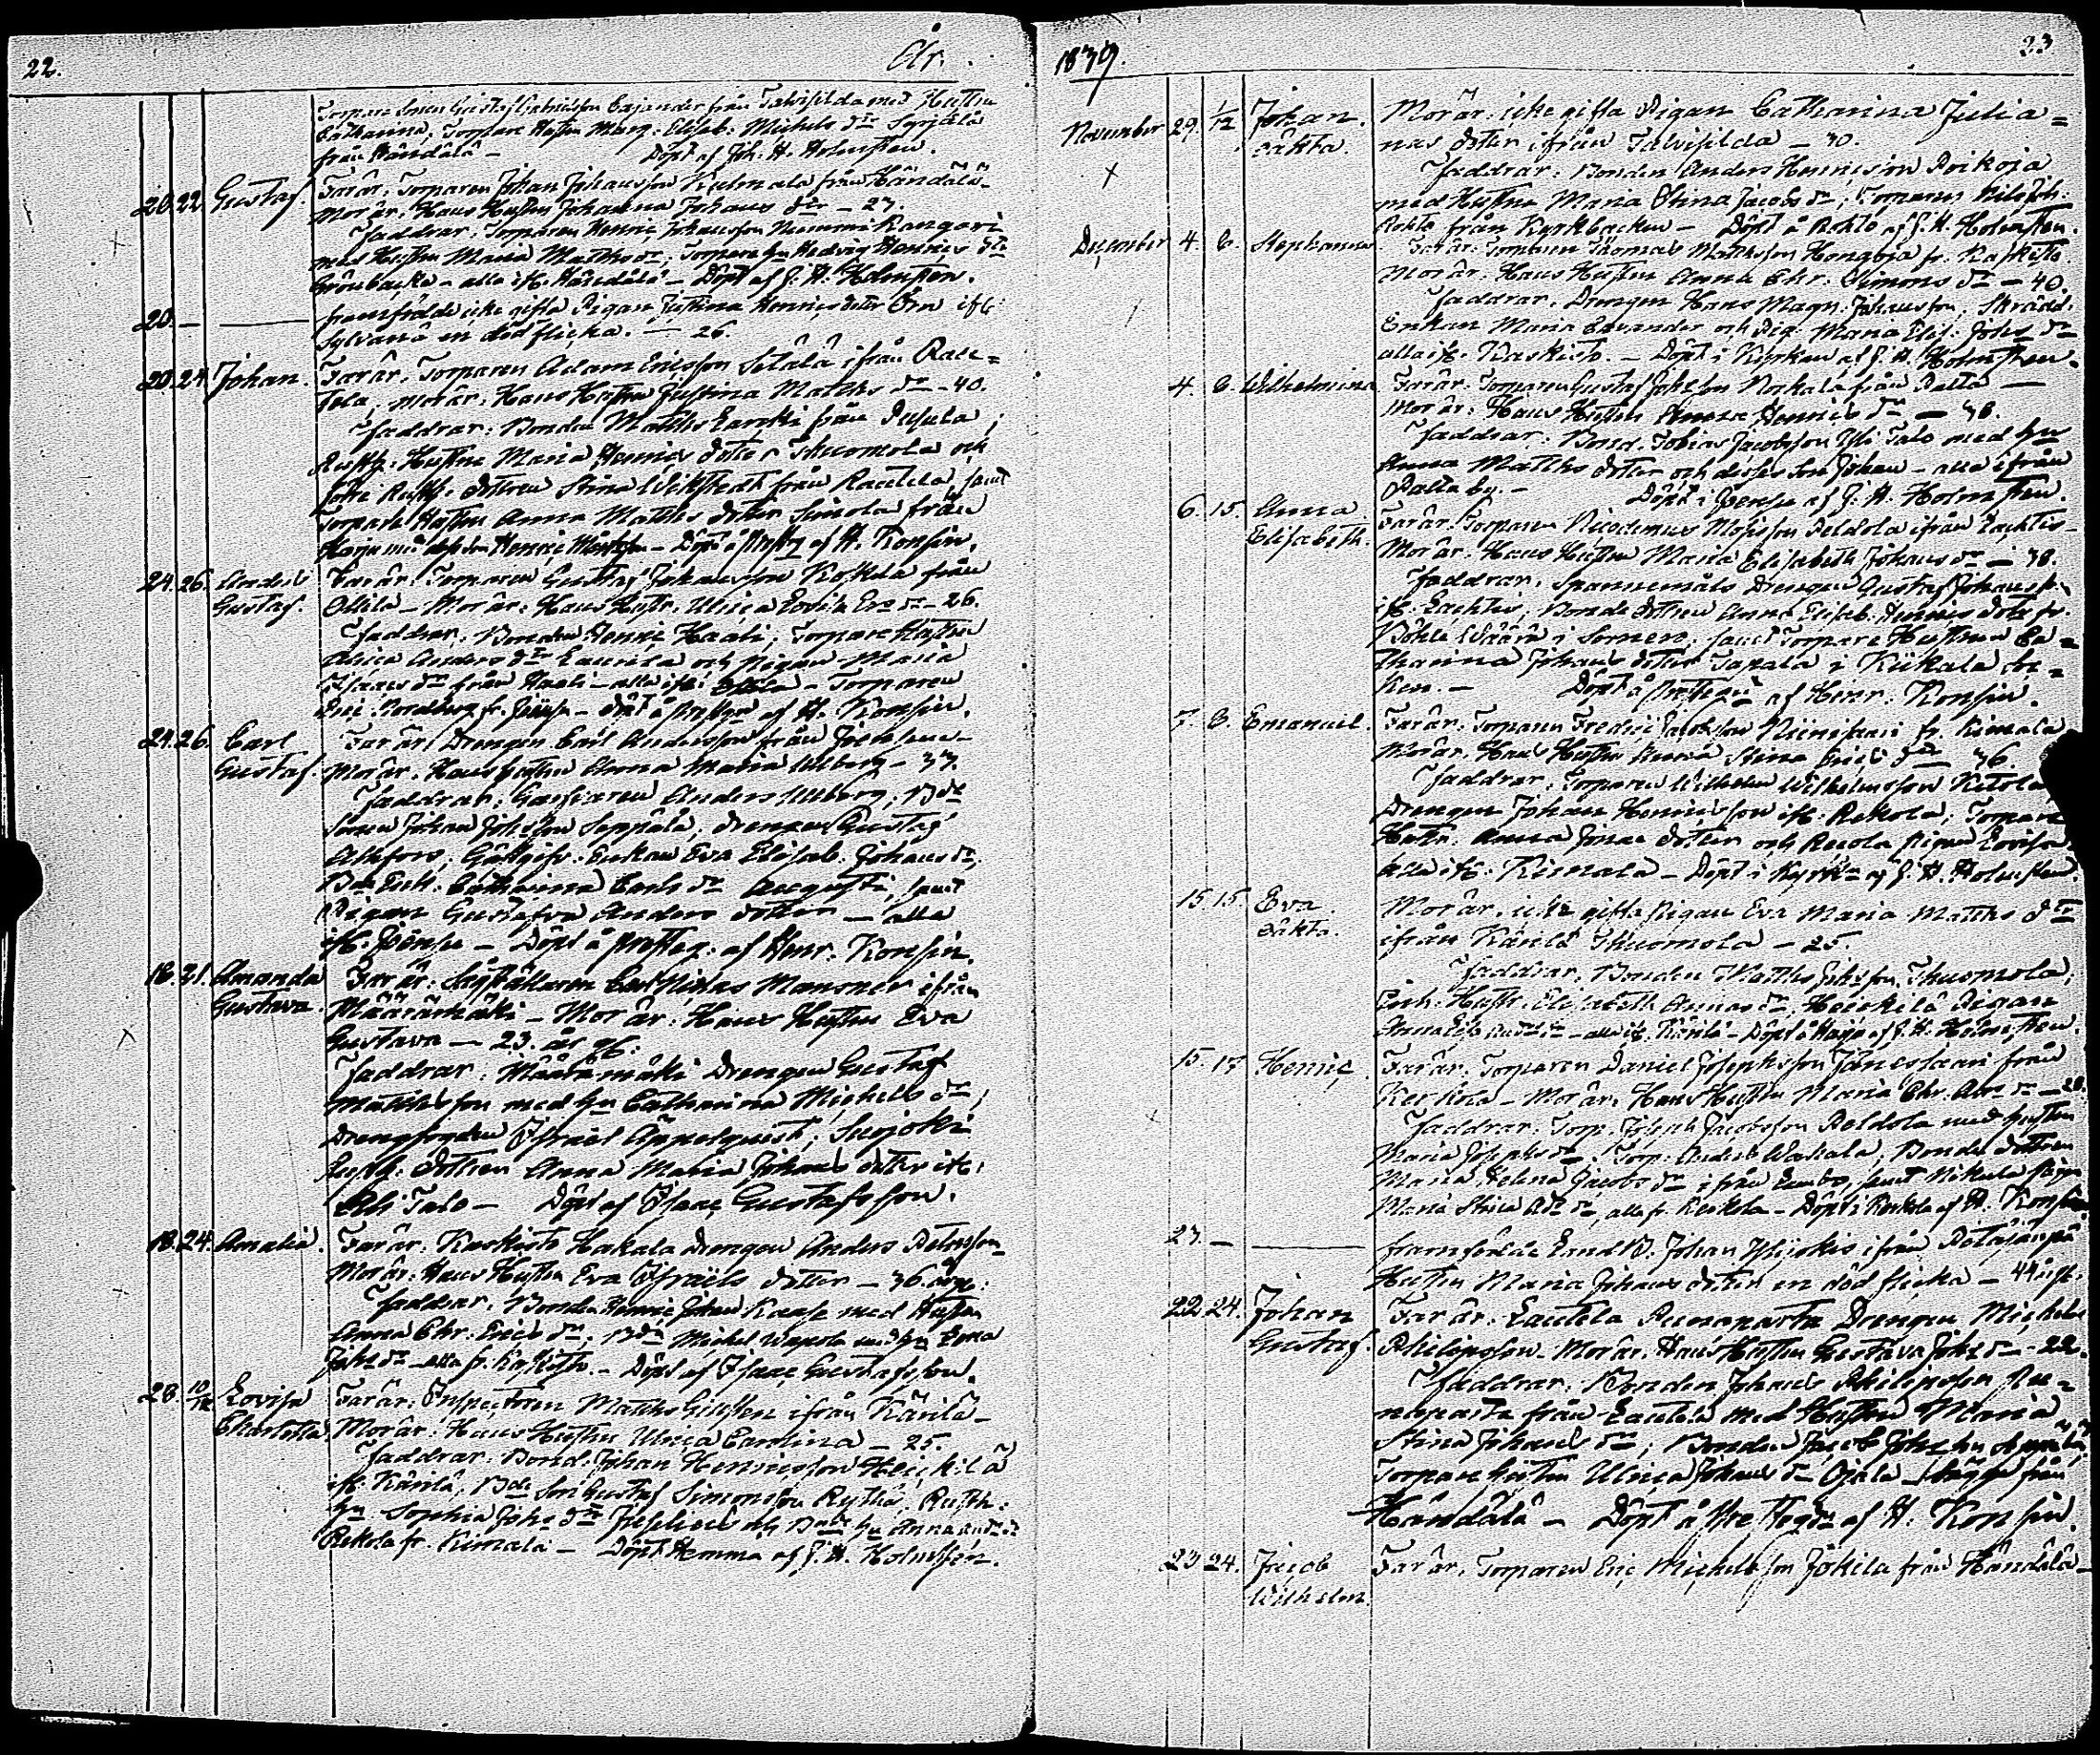 22.
År.
Torpare Sonen Gustaf Gabrielsson Cajander från Talvisilda med Hustru
Catharina, Torpare Hustru Marg: Elisab: Michels dr Syrjälä
från Händälä – Döpt af Joh: H. Holmsten.
20. 22. Gustaf. Far är, Torparen Johan Johansson Kulmala från Händälä –
Mor är, Hans Hustru Johanna Johans dr – 27.
Faddrar, Torparen Henric Johansson Nummi Kangari
med Hustru Maria Matths dr, Torpare hu Hedvig Henrics dr
Grönbacka – alla ifr. Händälä – Döpt af J. H. Holmsten.
20. – framfödde icke gifta Pigan Justina Henrics dotter Örn ifr:
Sylvänä en död flicka. – 26.
20. 24. Johan. Far är, Torparen Adam Ericsson Setälä ifrån Rau=
tela, Mor är, Hans Hustru Justina Matths dr – 40.
Faddrar: Bonden Matths från
Rusth: Hustru Maria Henrics dotter Thuomola och
Rusth: dottren Stina Wikstedt från Rautela, samt
Torpare Hustru Anna Matths dotter Simola från
Harju med dess son Henric – Döpt å Prestg af H. Konsin.
24. 26. Anders
Gustaf. Far är, Torparen Gustaf Johansson Koskela från
Ollila – Mor är, Hans Hustr. Ulrica Lovisa Ers dr – 26.
Faddrar, Bonden Henric Haali, Torpare Hustru
Ulrica Anders dr Laurila och Pigan Maria
Isaacs dr från Haali – alla ifr: Ollila – Torparen
Eric Nordberg fr. Joensu – döpt å prestgn af H. Konsin.
24. 26. Carl
Gustaf. Far är, Drengen Carl Andersson från Joensuu –
Mor är, Hans hustru Anna Maria Ulberg – 33.
Faddrar, Garfvaren Anders Ulberg, Bde
Sonen Johan Johsson Seppälä, drengen Gustaf
Ahlfors, Gästgifv. Enkan Eva Elisab: Johans dr,
Bde Enk: Catharina Carls dr Augusti, samt
Pigan Gustafva Anders dotter – alla
ifr. Joensu – Döpt å prestg: af Henr: Konsin.
18. 21. Amanda
Gustava. Far är: Carl Niclas Mansner ifrån
Määrämäki – Mor är: Hans Hustru Eva
Gustava – 23. år gl.
Faddrar: Määrämäki Drengen Gustaf
Matthsson med hu Catharina Michels dr,
Drengfogden Israel Äppelquist, Suojoki
Rusth: dottren Anna Maria Johans dotter ifr:
Yli Talo – Döpt af Isaac Gustafsson.
18. 24. Amalia. Far är, Kaskisto Hakala Drengen Anders Petersson –
Mor är, Hans Hustru Eva Israels dotter – 36. år gl:
Faddrar, Bonden Henric Johan Kaase med Hustru
Anna Chr: Erics dr, Bdn Michel Uusitalo med hu Eva
Johs dr – alla fr. Kaskisto. – Döpt af Isaac Gustafsson.
28. 10/12 Lovisa
Charlotta. Far är, Inspectoren Matths ifrån Kärilä –
Mor är, Hans Hustru Ulrica Carolina – 25.
Faddrar, Bond. Johan Henricsson Heickilä
ifr. Kärilä, Bde Son Gustaf Simonsson Rythä, Rusth:
hu Sophia Johs dr och Bde hu Anna And. dr
Rekola fr. Kimala – Döpt Hemma af J. H. Holmsten.
1839.
23
November 29. 1/12 Johan.
oäkta. Mor är, icke gifta Pigan Catharina Julia=
nas dotter ifrån Talvisilda – 30.
Faddrar. Bonden Anders Henricsson Poikoja
med Hustru Maria Stina Jacobs dr, Torparen Nils Joh:
Rohto från Kyrkbacken – Döpt å Rohto af J. H. Holmsten.
December 4. 8. Stephanus. Far är, Torparen Thomas Matthsson Hongoja fr. Kaskisto
Mor är: Hans Hustru Anna Chr: Simons dr – 40.
Faddrar. Drengen Hans Magn: Johansson, Skrädd:
Enkan Maria Cavander och Pig: Maria Elis: Johs dr
alla ifr: Kaskisto. – Döpt i Kyrkan af J. H. Holmsten.
4. 8. Wilhelmina Far är, Torparen Gustaf Johsson Koskala från Palta –
Mor är: Hans Hustru Anna Henrics dr – 38.
Faddrar. Bond. Tobias Jacobsson Yli Talo med hu
Anna Matths dotter och desses Son Johan – alla ifrån
Palta by. – Döpt i Joensu af J. H. Holmsten.
6. 15. Anna
Elisabeth. Far är, Torparen Nicodemus Mosisson Peldola ifrån Lachtis –
Mor är: Hans Hustru Maria Elisabeth Johans dr – 38.
Faddrar, Spannemåls Drengen Gustaf Johansson
ifr. Lachtis, Bonde dottren Anna Elisab. Henrics dotr fr.
i Somero, samt Torpare Hustrun Ca=
tharina Johans dotter Tapala i Kiikala
– Döpt å prestegn af Henr: Konsin.
7. 8. Emanuel. Far är, Torparen Fredric Jacobsson Niinisaari fr. Kimala
Mor är, Hans Hustru Maria Stina Erics dr – 36.
Faddrar, Torparen Wilhelm Wilhelmsson Ketola
Drengen Johan Henricsson ifr. Rekola, Torpare
Hustr: Anna Jonae dotter och Pigan Lovisa
alla ifr: Kimala – Döpt i Kyrkn af J. H. Holmsten
15. 15. Eva.
oäkta. Mor är, icke gifta Pigan Eva Maria Matths dr
ifrån Kärilä Thuomola – 25.
Faddrar, Bonden Matths Johsson Thuomola,
Enk: Hustr: Elisabeth Annas dr, Heickilä Pigan
Anna Lisa And. dr – alla ifr. Kärilä – Döpt å Harju af J. H. Holmsten.
15. 17. Henric. Far är, Torparen Daniel Josephsson Jänessaari från
Kerkola – Mor är, Hans Hustru Maria Chr. Abr. dr – 28.
Faddrar, Torp. Joseph Jacobsson Peldola med hustru
Maria Josephs dr, Torp. Anders Wakala, Bonde dottren
Maria Helena Jacobs dr ifrån Lembo, samt Nikula pigan
Maria Stina Ad. dr, alla fr. Kerkola – Döpt i Kerkola af H. Konsin
23. – framfödde Johan Ylijoki ifrån
Hustru Maria Johans dotter en död flicka – 44 år gl.
22. 24. Johan
Gustaf. Far är, Lautela Ruonaparta Drengen Michel
Philipsson – Mor är, Hans Hustru Gustava Johs dr – 22.
Faddrar, Bonden Johan Philipsson Ru=
naparta från Lautela med Hustru Maria
Stina Johans dr, Bonden Jacob Johsson
Torpare hustru Ulrica Johans dr Ojala – bägge från
Händälä – Döpt å Prestegn af H. Konsin.
23. 24. Jacob
Wilhelm. Far är, Torparen Eric Michelsson Jökila från Händälä –